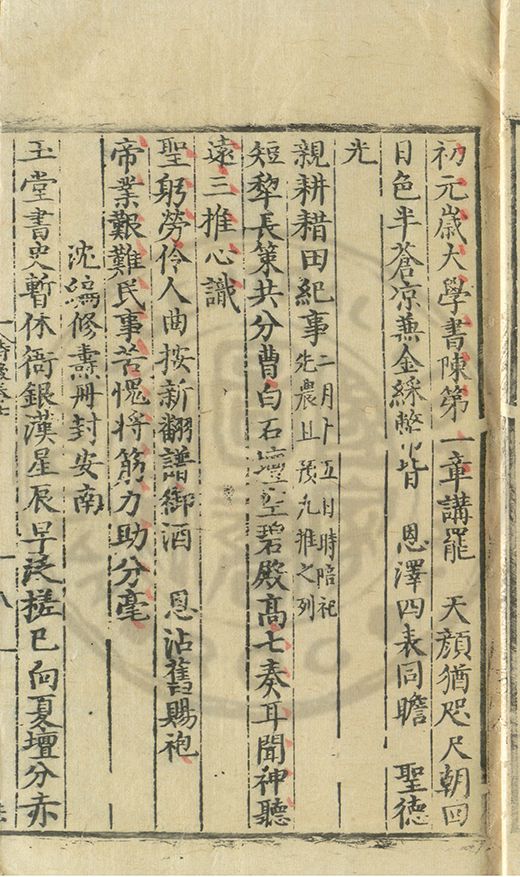 初元歲大學書陳第一章講罷 天顏猶咫尺朝回
日色半蒼凉兼金綵幣皆 恩澤四表同瞻 聖德
光
親耕耤田紀事二月卜五日時陪祀
先農且預九推之列
短犂長策共分曹白石壇空碧殿高七奏耳聞神聽
遠三推心識
聖躬勞伶人曲按新翻譜御酒 恩沾舊賜袍
帝業艱難民事苦愧将筋力助分毫
沈編修燾册封安南
玉堂書史暫休衙銀漢星辰早泛槎已向夏壇分赤